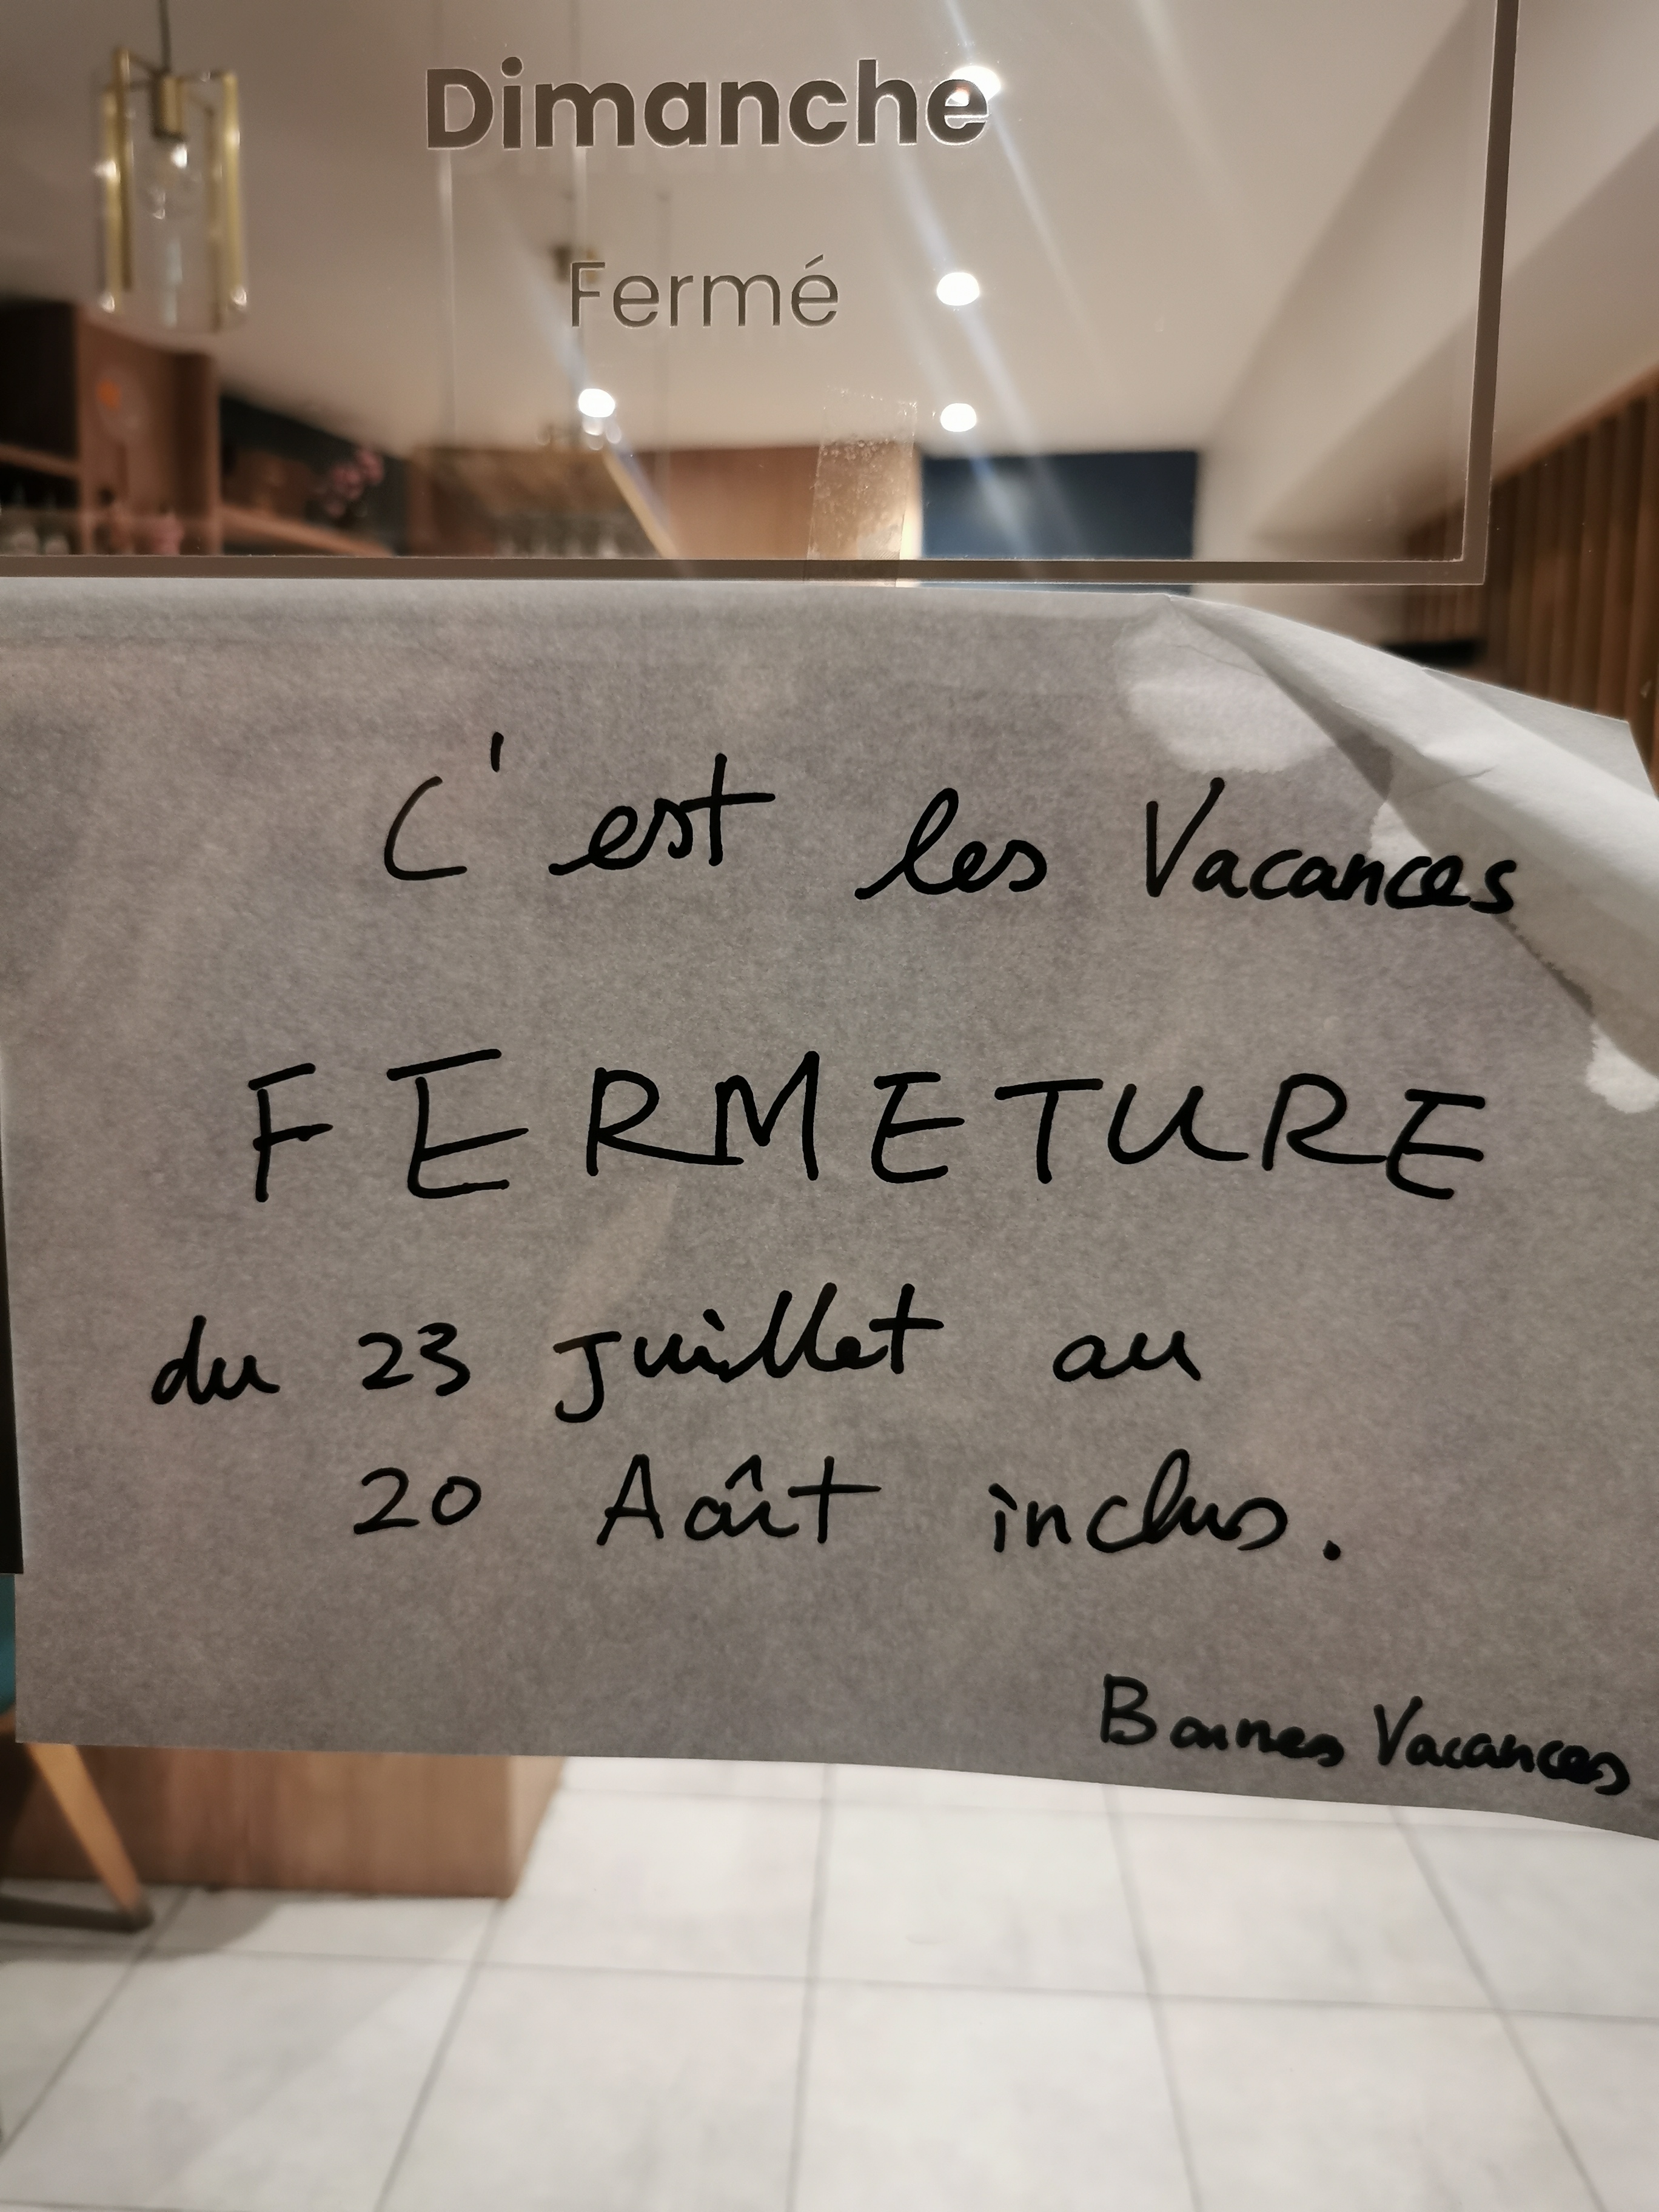 Dimanche
Fermé
C'est les Vacances
FERMETURE
du 23 juillet au
20 Août inclus.
Bonnes Vacances